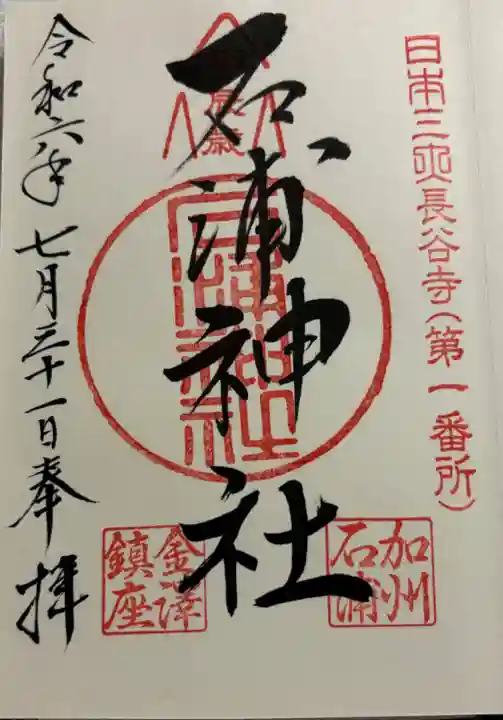 日本三所長谷寺(第一番所)
辰歳
石浦神社
石浦神社
加州
石浦
金澤
鎮座
令和六年 七月三十一日奉拝